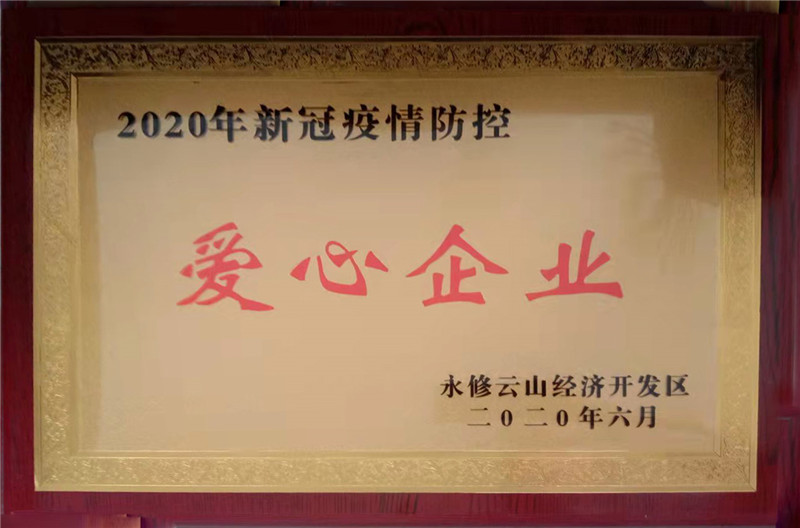 2020年新冠疫情防控
爱心企业
永修云山经济开发区
二0二0年六月